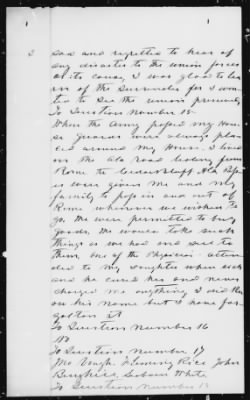 1 1
2 Sad and regretted to hear of
any disaster to the union forces
or its cause, I was glad to lea
rn of the Surrender for I wan
ted to See the union preserved,
To Question Number 15
When the Army passed my Hou
se Guards were always plac
ed around my House. I lived
on the Ala road leading from
Rome to Ala
were given me and my
family to pass in and out of
Rome whenever we wished to
go. We were permitted to buy
Goods. We would take such
things as we had and sell to
them, one of the Physicians atten
ded to my daughter when sick
and he cured her and never
charged me anything. I did know
his name but I have for
gotten it
To Question Number 16
No
To Question Number 17
John
White
To Question Number 18